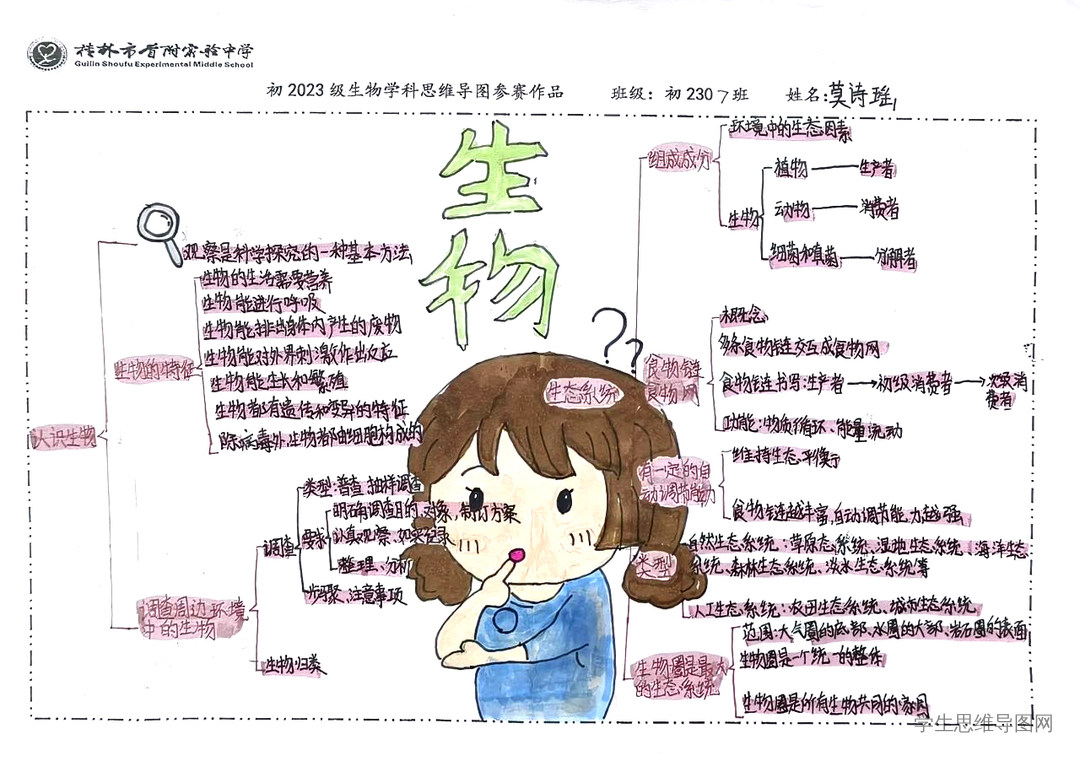 桂林市首附实验中学
Guilin Shoufu Experimental Middle School
初 2023 级生物学科思维导图参赛作品 班级：初 2307班 姓名：莫诗瑶
生物
认识生物
观察是科学探究的一种基本方法
生物的特征
生物的生活需要营养
生物能进行呼吸
生物能排出身体内产生的废物
生物能对外界刺激作出反应
生物能生长和繁殖
生物都有遗传和变异的特征
除病毒外,生物都由细胞构成的
调查周边环境
中的生物
调查
类型:普查,抽样调查
要求
明确调查目的,对象,制订方案
认真观察、如实记录
整理、分析
步骤、注意事项
生物归类
??
生态系统
组成成分
环境中的生态因素
生物
植物——生产者
动物——消费者
细菌和真菌——分解者
食物链
食物网
概念
多条食物链交互成食物网
食物链书写:生产者→初级消费者→次级消
费者
功能:物质循环、能量流动
有一定的自
动调节能力
维持生态平衡
食物链越丰富,自动调节能力越强
类型
自然生态系统:草原态系统、湿地生态系统、海洋生态
系统、森林生态系统、淡水生态系统等
人工生态系统:农田生态系统、城市生态系统
生物圈是最大
的生态系统
范围:大气圈的底部、水圈的大部、岩石圈的表面
生物圈是一个统一的整体
生物圈是所有生物共同的家园
学生思维导图网